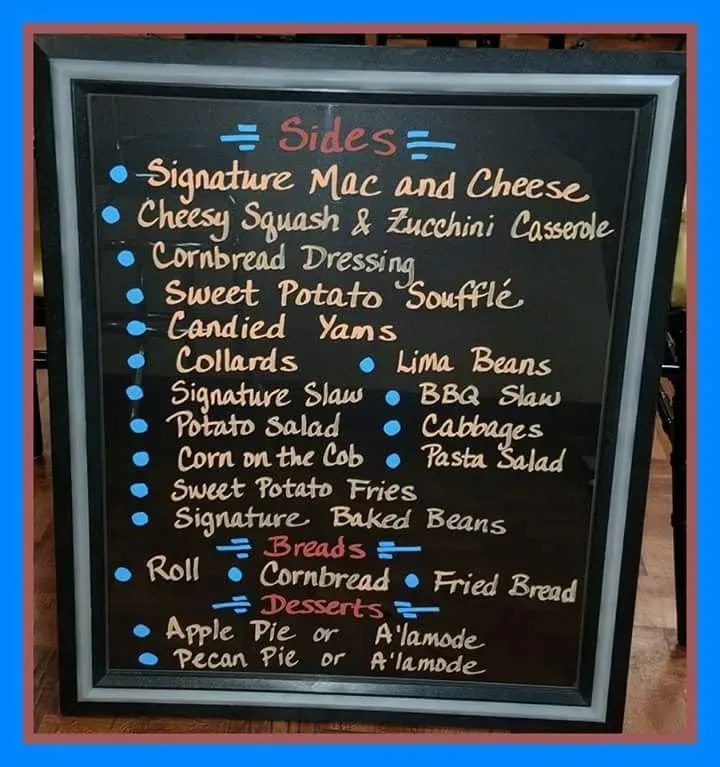 Sides
Signature Mac and Cheese
Cheesy Squash & Zucchini Casserole
Cornbread Dressing
Sweet Potato Soufflé
Candied Yams
Collards • Lima Beans
Signature Slaw • BBQ Slaw
Potato Salad • Cabbages
Corn on the Cob • Pasta Salad
Sweet Potato Fries
Signature Baked Beans
Breads
Roll • Cornbread • Fried Bread
Desserts
Apple Pie or A'lamode
Pecan Pie or A'lamode